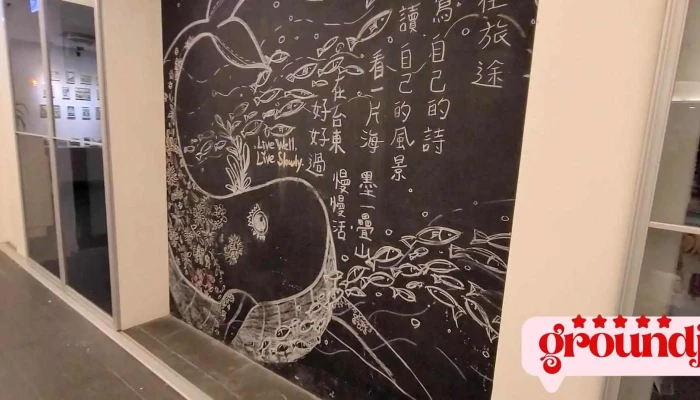 在旅途
寫自己的詩
讀自己的風景
看一片海
墨一疊山
在台東
好好過
慢慢活
Live Well.
Live Slowly.